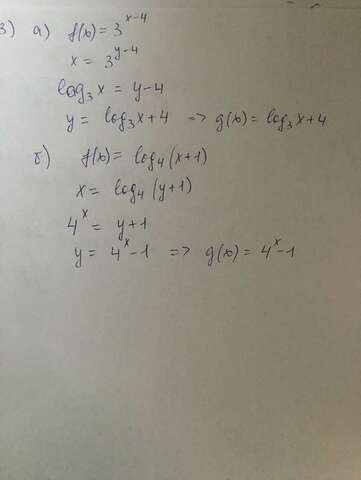 3) а) f(x) = 3^{x-4}
x = 3^{y-4}
log₃x = y-4
y = log₃x+4 => g(x) = log₃x+4
б) f(x) = log₄(x+1)
x = log₄(y+1)
4^x = y+1
y = 4^x-1 => g(x) = 4^x-1